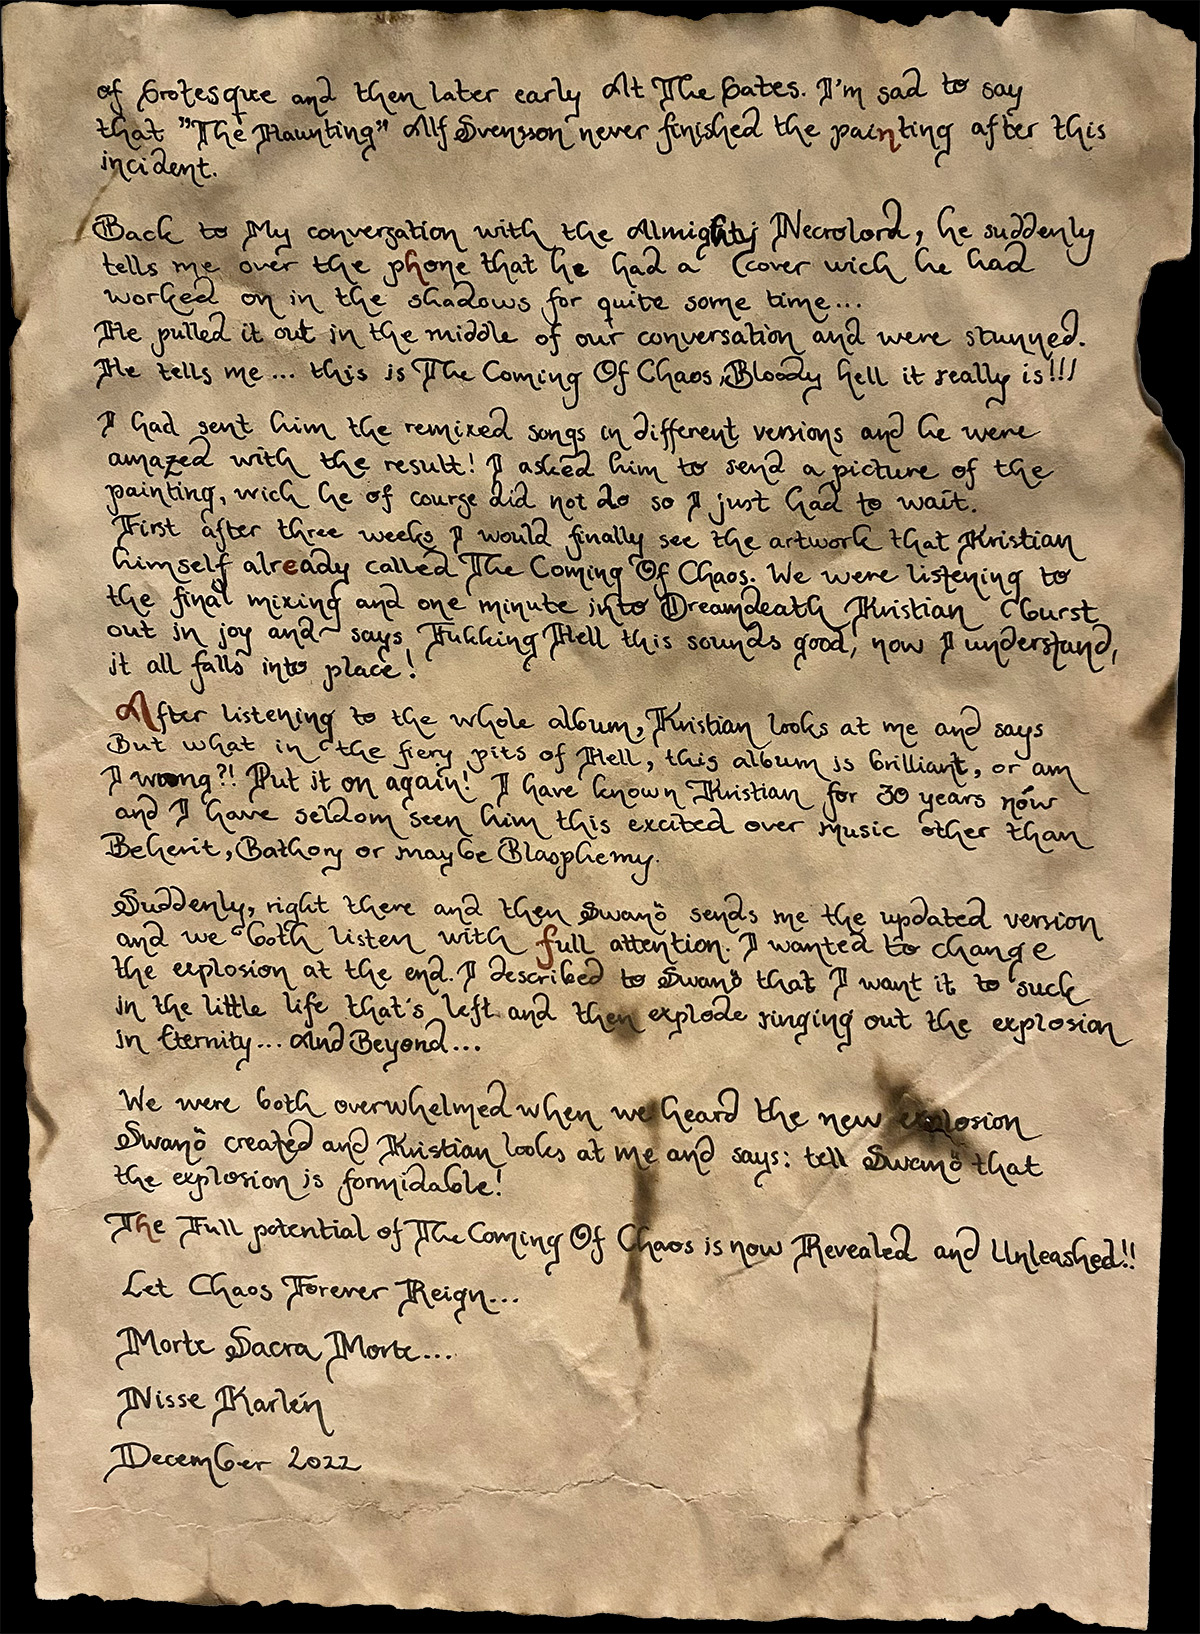 of Grotesque and then later early At The Gates. I'm sad to say
that "The Haunting" Alf Svensson never finished the painting after this
incident.
Back to My conversation with the Almighty Necrolord, he suddenly
tells me over the phone that he had a cover wich he had
worked on in the shadows for quite some time...
He pulled it out in the middle of our conversation and were stunned.
He tells me... this is The Coming Of Chaos, Bloody hell it really is!!!
I had sent him the remixed songs in different versions and he were
amazed with the result! I asked him to send a picture of the
painting, wich he of course did not do so I just had to wait.
First after three weeks I would finally see the artwork that Kristian
himself already called The Coming Of Chaos. We were listening to
the final mixing and one minute into Dreamdeath Kristian burst
out in joy and says Fukking Hell this sounds good, now I understand,
it all falls into place!
After listening to the whole album, Kristian looks at me and says
But what in the fiery pits of Hell, this album is brilliant, or am
I wrong?! Put it on again! I have known Kristian for 30 years now
and I have seldom seen him this excited over music other than
Beherit, Bathory or maybe Blasphemy.
Suddenly, right there and then Swanö sends me the updated version
and we both listen with full attention. I wanted to change
the explosion at the end. I described to Swanö that I want it to suck
in the little life that's left and then explode ringing out the explosion
in Eternity... And Beyond...
We were both overwhelmed when we heard the new explosion
Swanö created and Kristian looks at me and says: tell Swanö that
the explosion is formidable!
The Full potential of The Coming Of Chaos is now Revealed and Unleashed!!
Let Chaos Forever Reign...
Morte Sacra Morte...
Nisse Karlén
December 2022